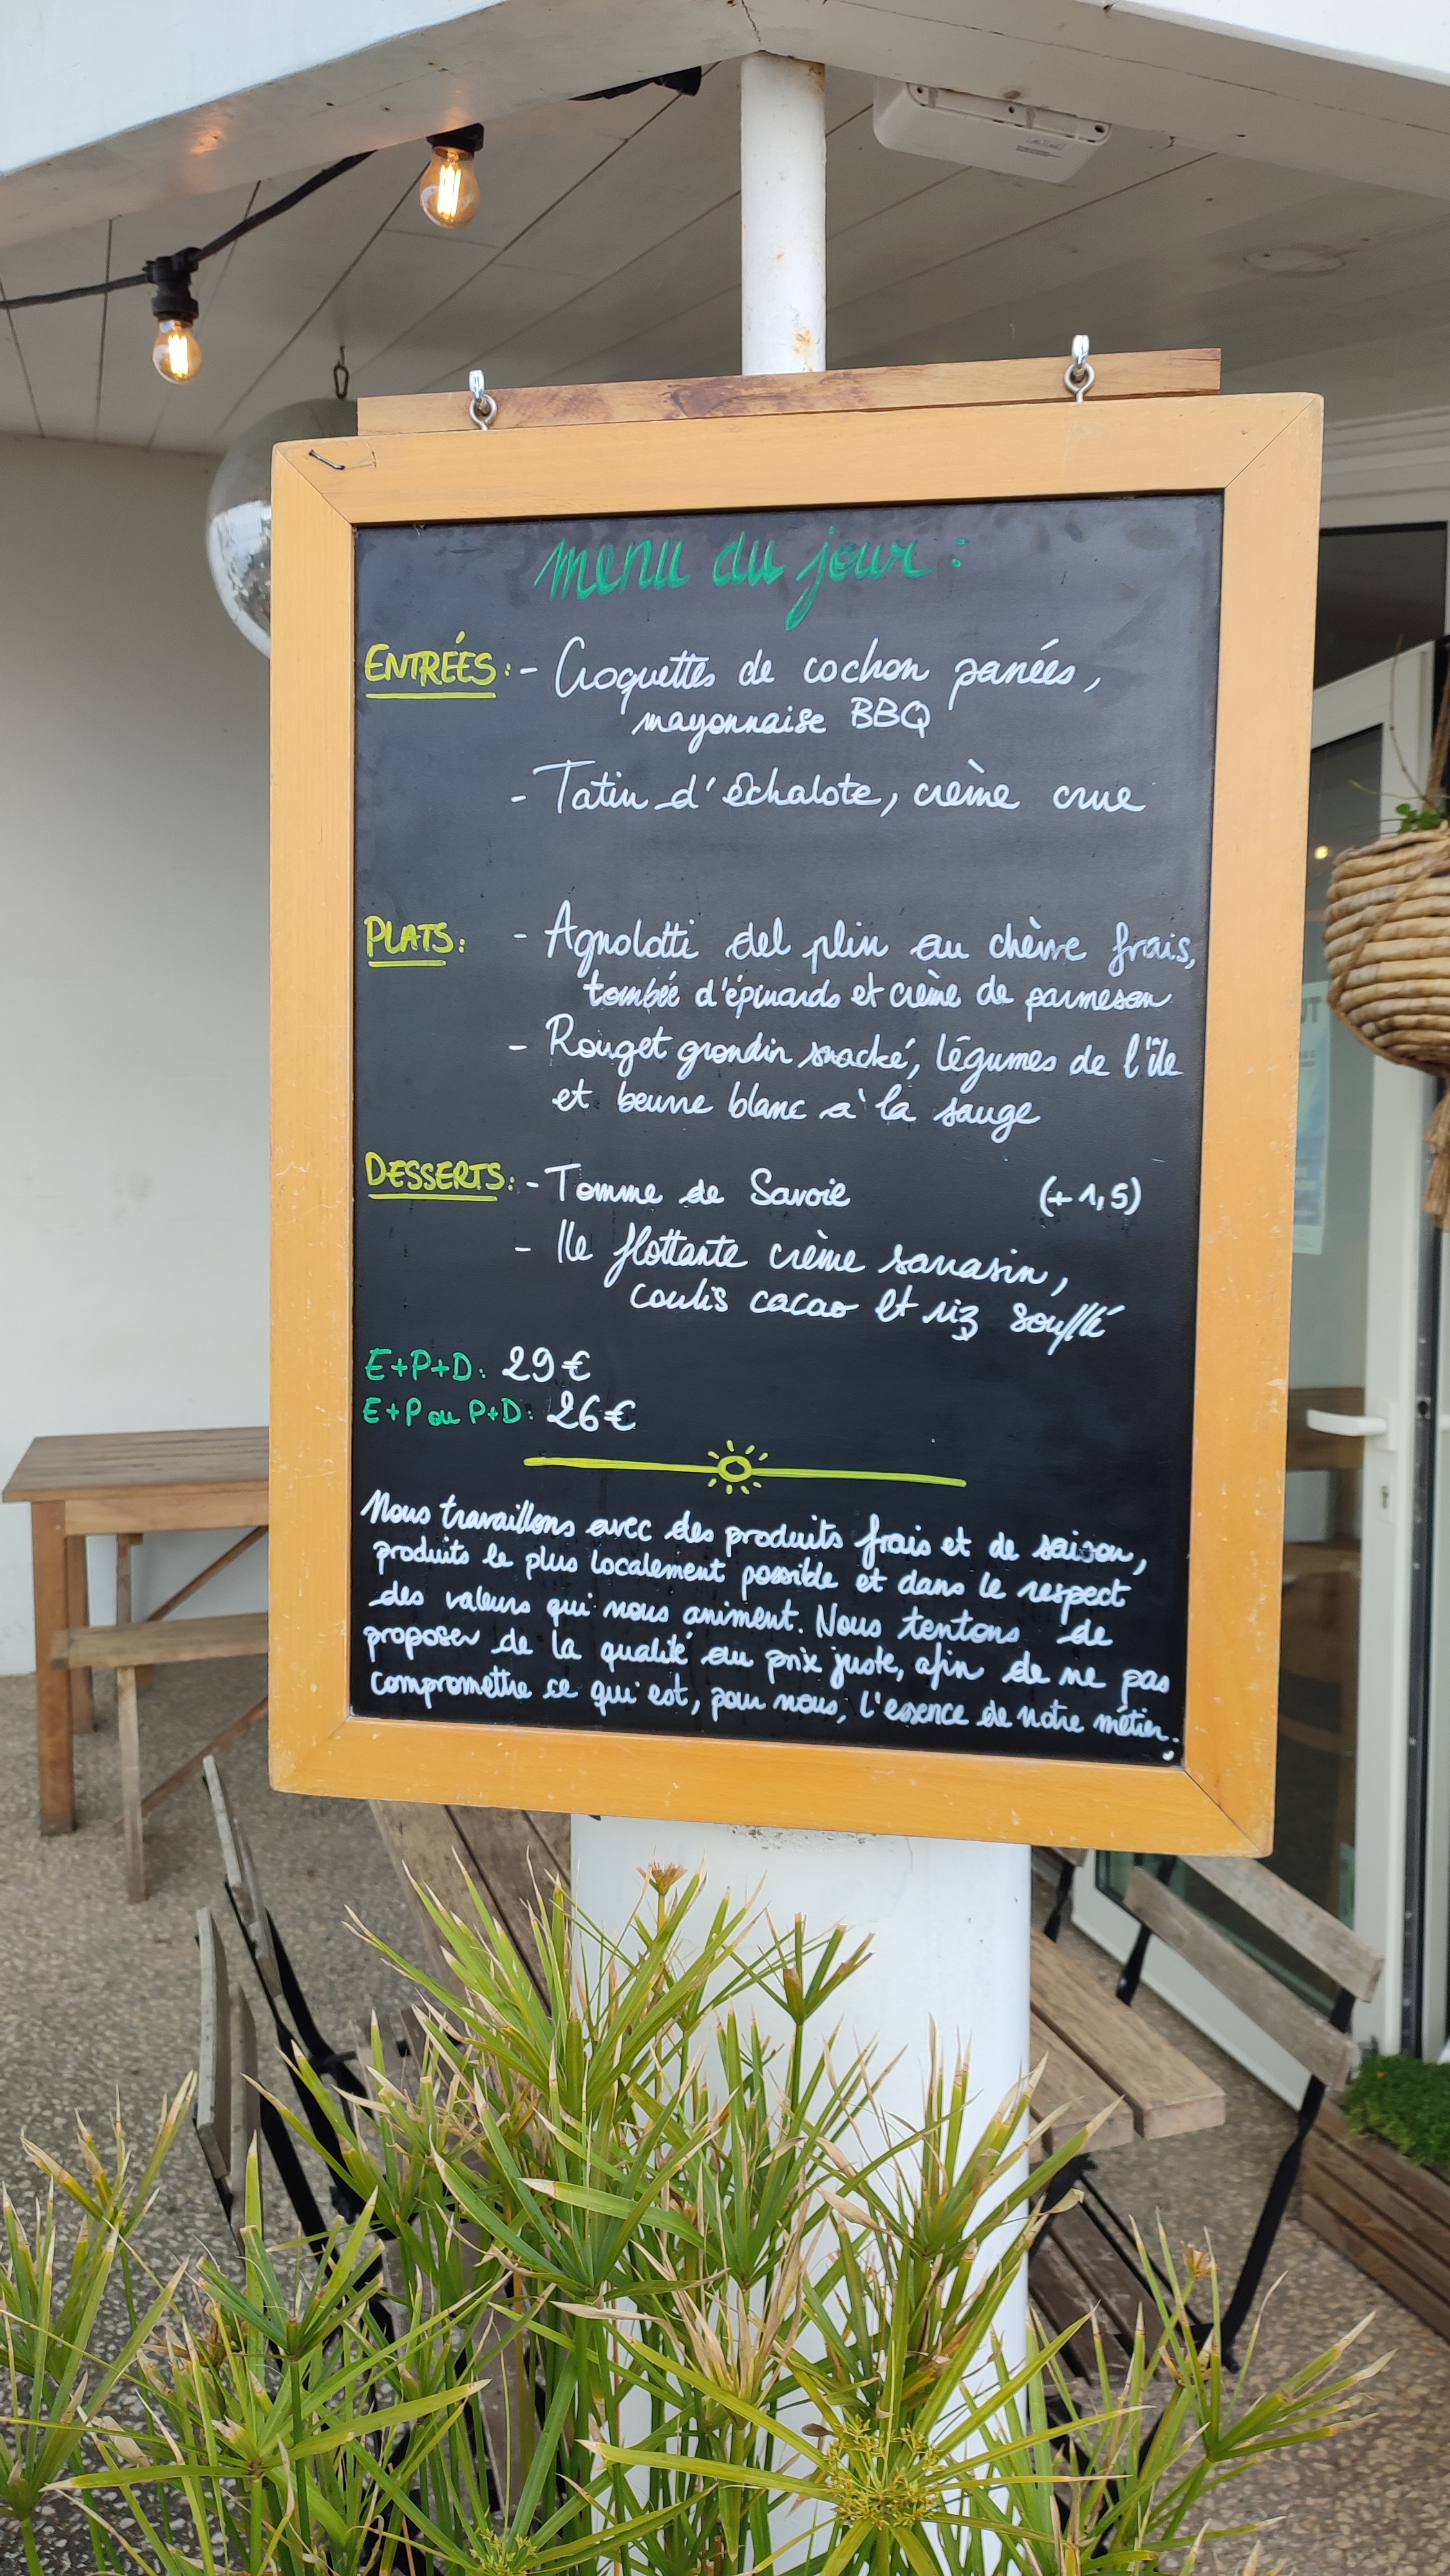 menu du jour :
ENTRÉES : - Croquettes de cochon panées,
mayonnaise BBQ
- Tatin d'échalote, crème crue
PLATS : - Agnolotti del plin au chèvre frais,
tombée d'épinards et crème de parmesan
- Rouget grondin snacké, légumes de l'île
et beurre blanc à la sauge
DESSERTS : - Tomme de Savoie (+ 1,5)
- Ile flottante crème sarrasin,
coulis cacao et riz soufflé
E+P+D : 29 €
E+P ou P+D : 26 €
Nous travaillons avec des produits frais et de saison,
produits le plus localement possible et dans le respect
des valeurs qui nous animent. Nous tentons de
proposer de la qualité au prix juste, afin de ne pas
compromettre ce qui est, pour nous, l'essence de notre métier.